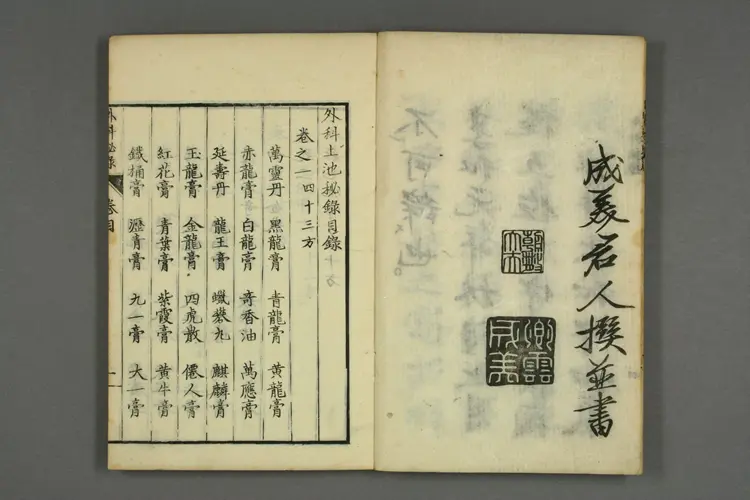 成美名人撰並書
外科土池秘錄目錄
卷之一 四十三方
萬靈丹 黑龍膏 青龍膏 黄龍膏
赤龍膏 白龍膏 奇香油 萬應膏
延壽丹 龍王膏 蠟礬丸 麒麟膏
玉龍膏 金龍膏 四虎散 僊人膏
紅花膏 青葉膏 紫霞膏 黄牛膏
鐵桶膏 瀝青膏 九一膏 大一膏
外科秘錄 卷目 一